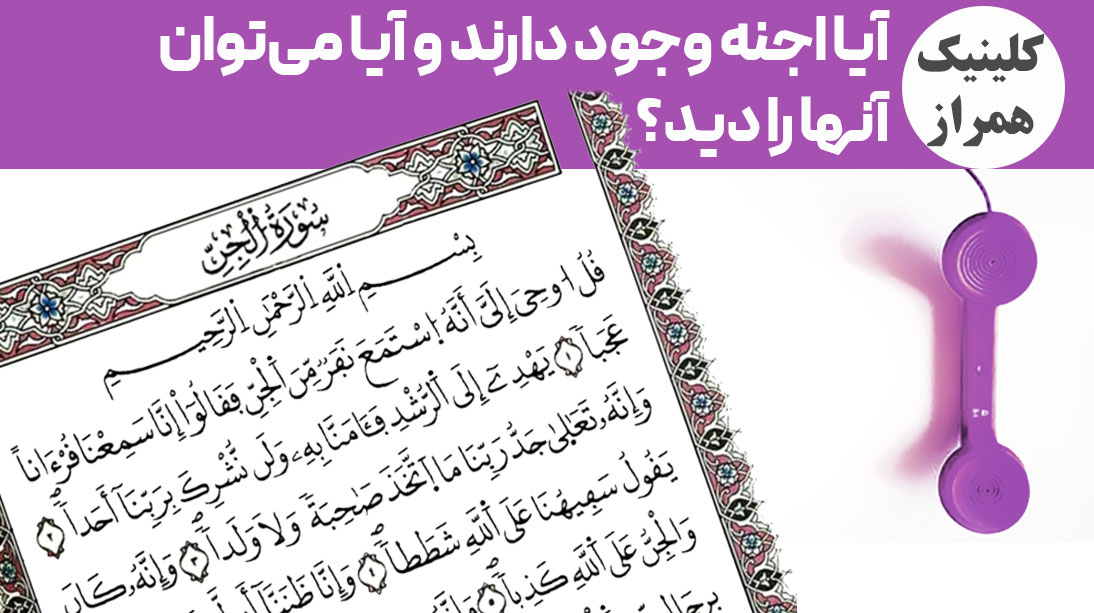 آیا اجنه وجود دارند و آیا می‌توان
آنها را دید؟
کلینیک
همراز
سُورَةُ الْجِنِّ
بِسْمِ اللَّهِ الرَّحْمَٰنِ الرَّحِيمِ
قُلْ أُوحِىَ إِلَىَّ أَنَّهُ اسْتَمَعَ نَفَرٌ مِّنَ الْجِنِّ فَقَالُوٓا۟ إِنَّا سَمِعْنَا قُرْءَاناً
عَجَباً ١ يَهْدِىٓ إِلَى الرُّشْدِ فَـَٔامَنَّا بِهِۦ وَلَن نُّشْرِكَ بِرَبِّنَآ أَحَداً ٢
وَإِنَّهُۥ تَعَٰلَىٰ جَدُّ رَبِّنَا مَا اتَّخَذَ صَٰحِبَةً وَلَا وَلَداً ٣ وَإِنَّهُۥ كَانَ
يَقُولُ سَفِيهُنَا عَلَى اللَّهِ شَطَطاً ٤ وَإِنَّا ظَنَنَّآ
وَالْجِنُّ عَلَى اللَّهِ كَذِباً ٥